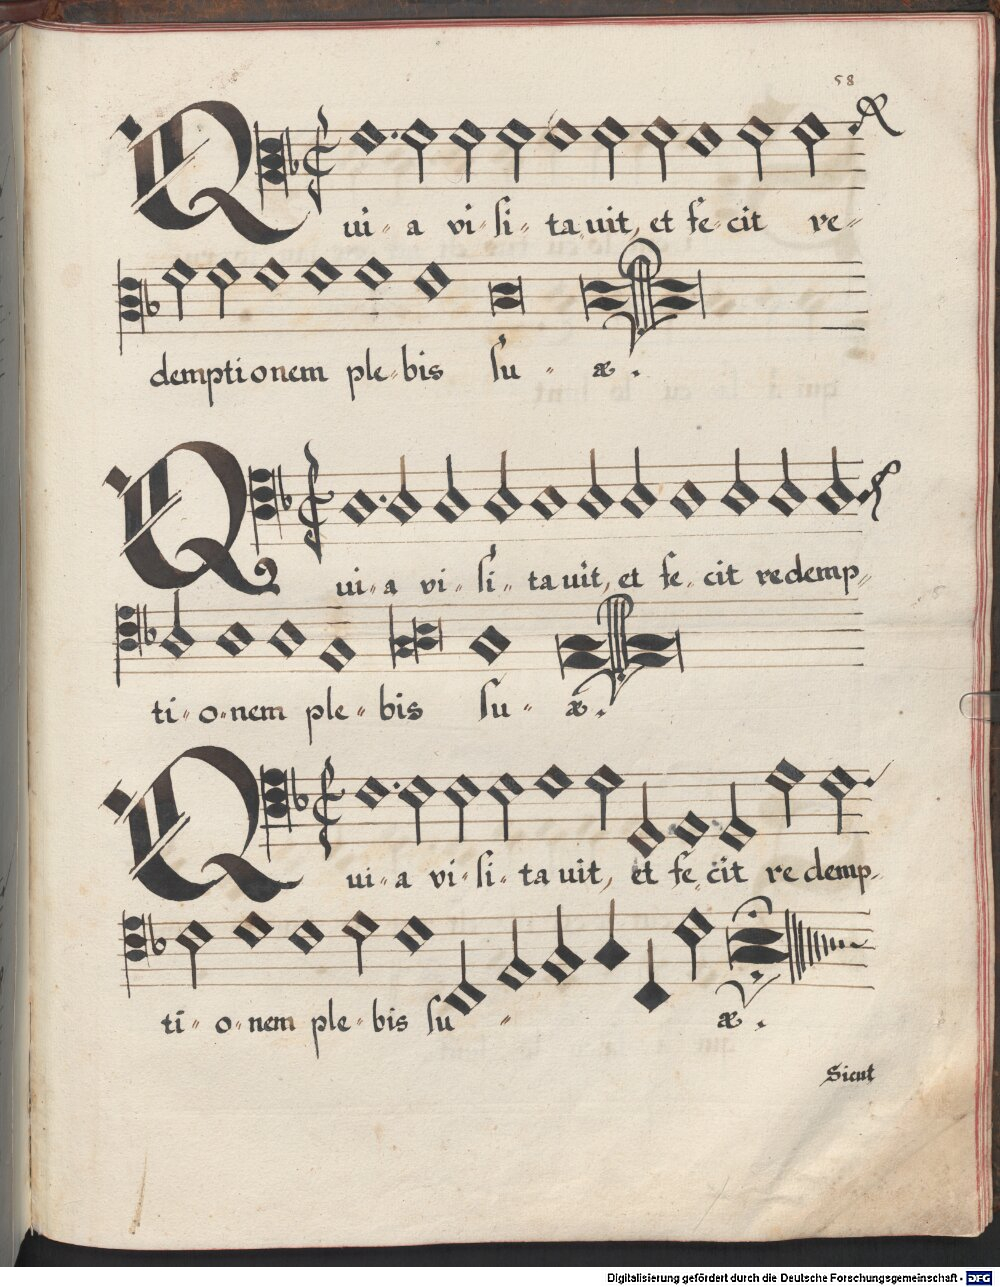 58
Qui - a vi - si - ta uit, et fe - cit re -
demptionem ple - bis su - æ.
Qui - a vi - si - ta uit, et fe - cit redemp -
ti - o - nem ple - bis su - æ.
Qui - a vi - si - ta uit, et fe - cit redemp -
ti - o - nem ple - bis su - æ.
Sicut
Digitalisierung gefördert durch die Deutsche Forschungsgemeinschaft - DFG